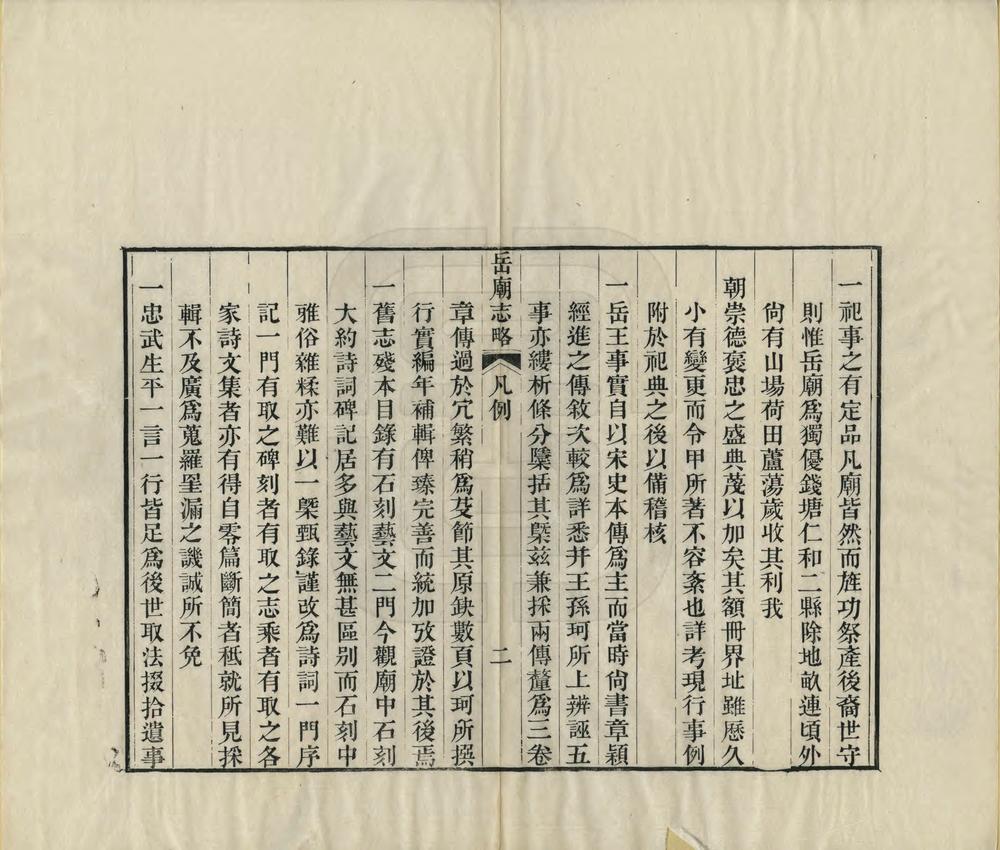 一祀事之有定品凡廟皆然而旌功祭產後裔世守
則惟岳廟爲獨優錢塘仁和二縣除地畝連頃外
尙有山場荷田蘆蕩歲收其利我
朝崇德褒忠之盛典茂以加矣其額冊界址雖歷久
小有變更而令甲所著不容紊也詳考現行事例
附於祀典之後以備稽核
一岳王事實自以宋史本傳爲主而當時尙書章穎
經進之傳敘次較爲詳悉并王孫珂所上辨誣五
事亦縷析條分櫽括其槩茲兼採兩傳釐爲三卷
岳廟志略 凡例 二
章傳過於冗繁稍爲芟節其原缺數頁以珂所撰
行實編年補輯俾臻完善而統加攷證於其後焉
一舊志殘本目錄有石刻藝文二門今觀廟中石刻
大約詩詞碑記居多與藝文無甚區別而石刻中
雅俗雜糅亦難以一槩甄錄謹改爲詩詞一門序
記一門有取之碑刻者有取之志乘者有取之各
家詩文集者亦有得自零篇斷簡者秪就所見採
輯不及廣爲蒐羅罣漏之譏誠所不免
一忠武生平一言一行皆足爲後世取法掇拾遺事